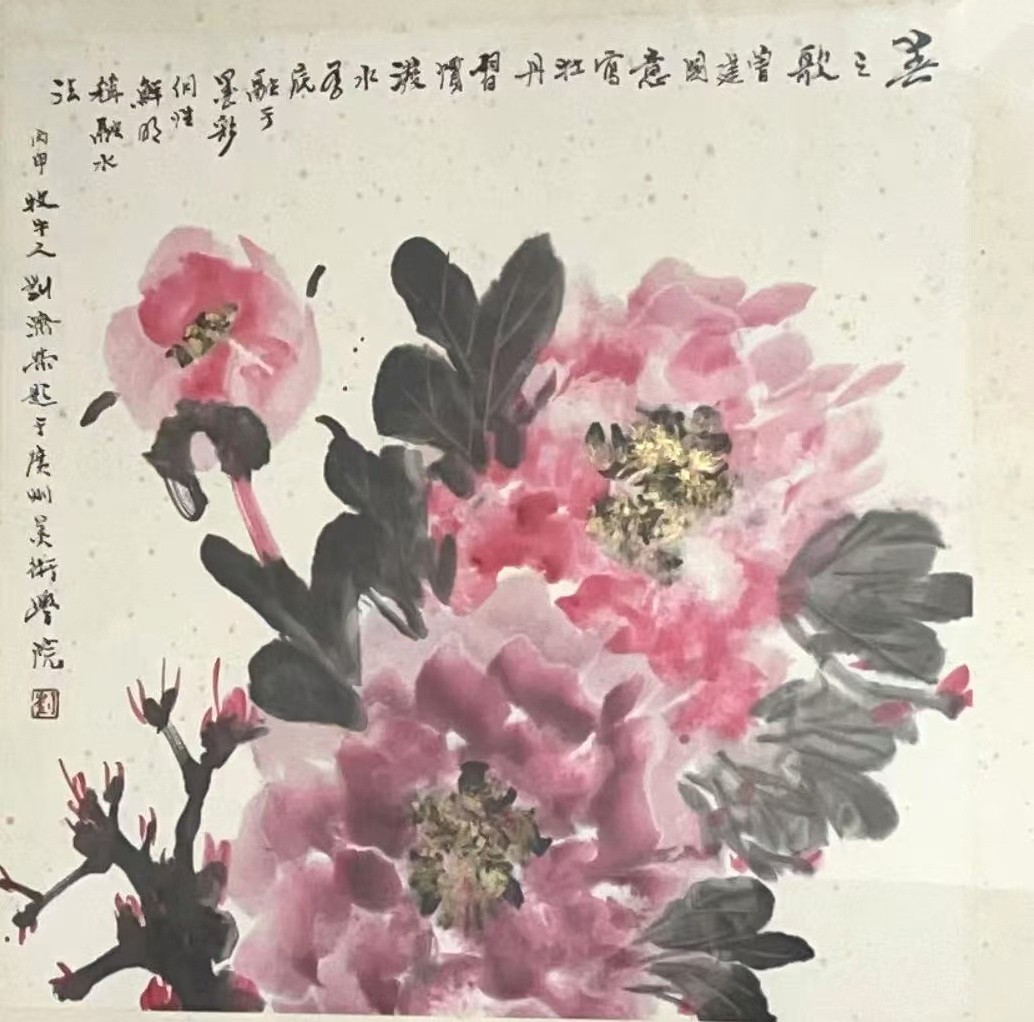 美之歌 曾建國意寫牡丹習慣潑水為底融于墨彩個性鮮明稱融水法
丙申牧牛人劉濟榮題于廣州美術學院
劉